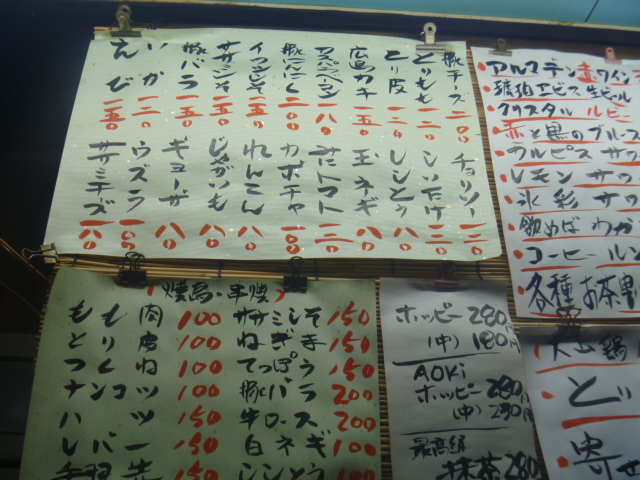 豚チーズ 二〇〇
とりもも 一二〇
とり皮 一二〇
広島カキ 一五〇
アスパラベーコン 一八〇
豚にんにく 二〇〇
イワシしそ 一五〇
ササミしそ 一五〇
豚バラ 一五〇
いか 一二〇
えび 一五〇
チョリソー 二二〇
しいたけ 二二〇
ししとう 一八〇
玉ネギ 一八〇
ミニトマト 二二〇
カボチャ 一〇〇
れんこん 一八〇
じゃがいも 一八〇
ギョーザ 一八〇
ウズラ 一〇〇
ササミチーズ 一八〇
アルステン赤ワイン
琥珀エビス生ビール
クリスタルルビー
赤と黒のブルース
カルピスサワ
レモンサワ
水彩サワ
飲めばわか
コーヒールン
各種お茶割
焼鳥・串焼
もも肉 100
とり皮 100
つくね 100
ナンコツ 150
ハツ 150
レバー 150
ササミしそ 150
ねぎま 150
てっぽう 150
豚バラ 200
牛ロース 200
白ネギ 100
ホッピー 280円
(中) 180円
AOKi
ホッピー 280円
(中) 230円
最高級
抹茶 280
鍋
どり
寄せ